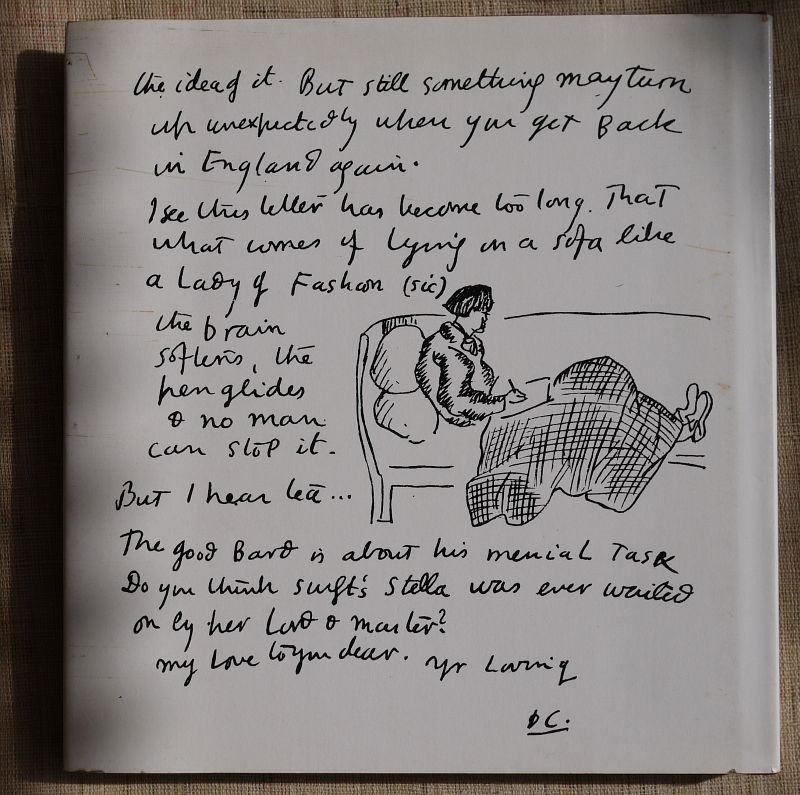 the idea of it. But still something may turn
up unexpectedly when you get Back
in England again.
I see this letter has become too long. That
what comes of lying on a sofa like
a Lady of Fashion (sic)
the brain
softens, the
pen glides
& no man
can stop it.
But I hear tea...
The good Bard is about his menial Task
Do you think Swift's Stella was ever waited
on by her Lord & master?
my Love to you dear. Yr Loving
DC.